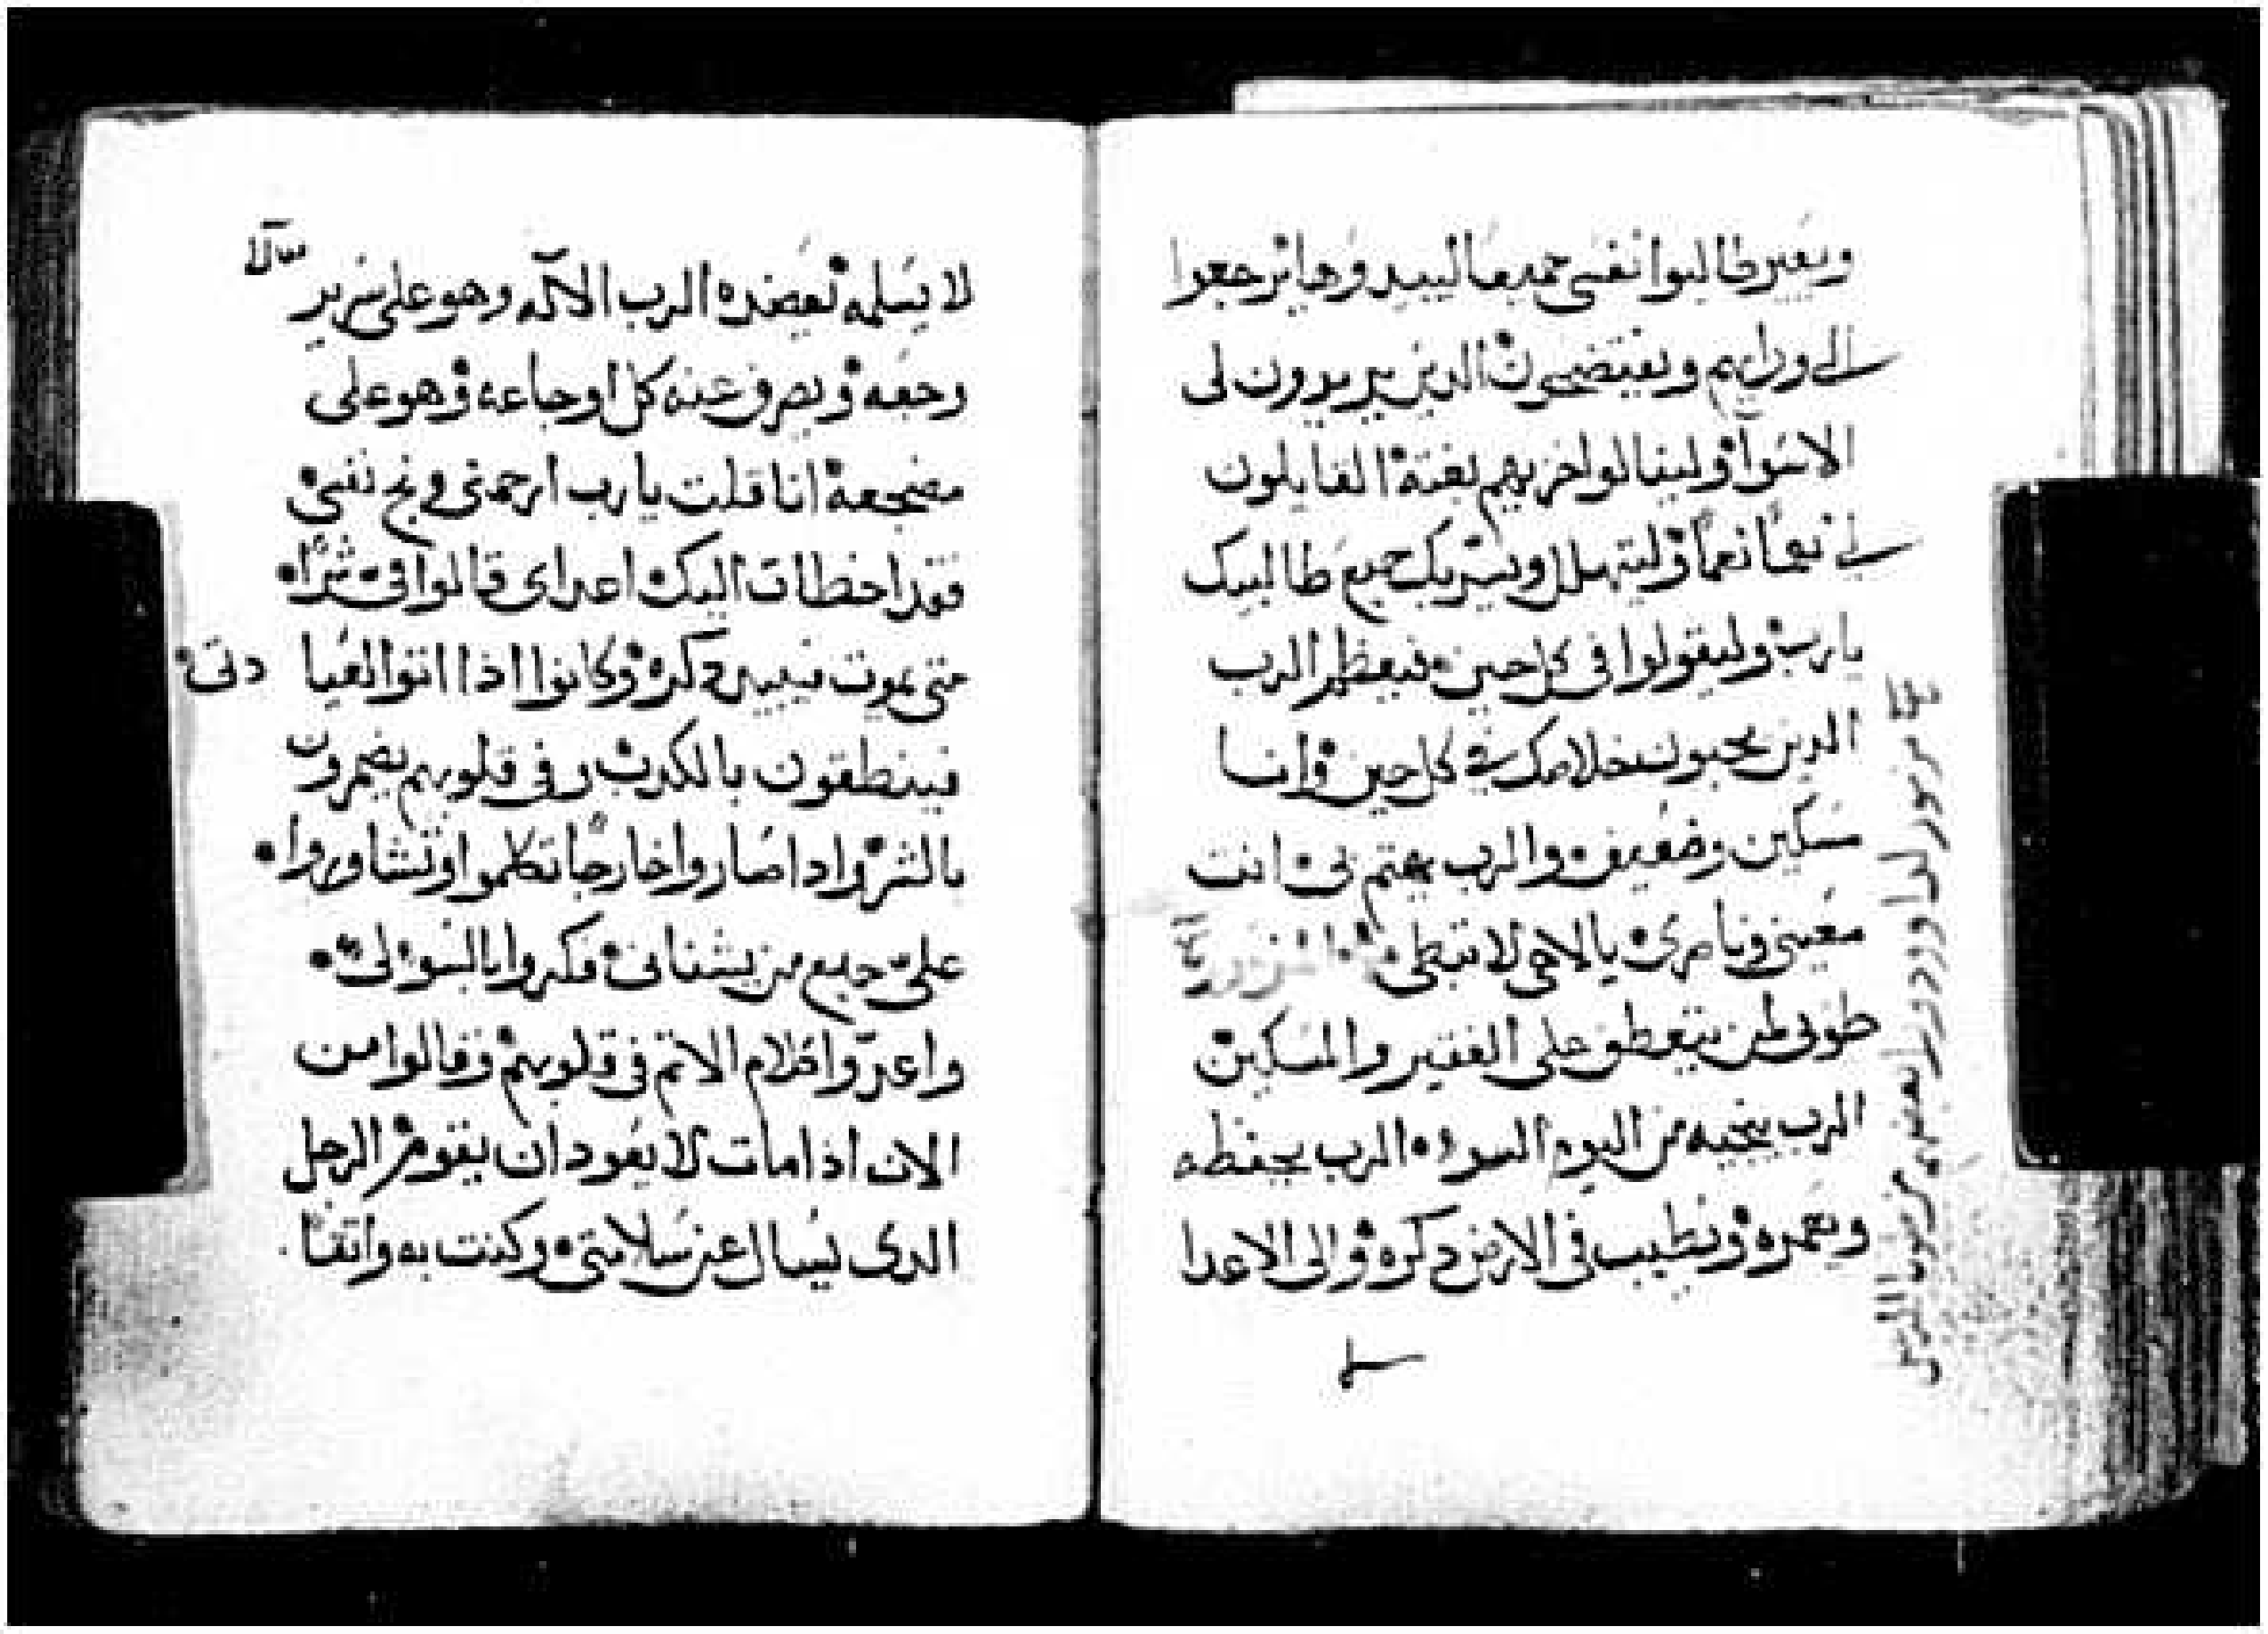 ويعير طالبوا نفسي جميعا ليبيدوها يرجعوا
الى ورايهم ويفتضحون الدين يريدون لى
الاسوآ ولينالوا خزيهم بغتة القايلون
لى نعمًا نعمًا وليتهلل ويسر بك جميع طالبيك
يارب وليقولوا فى كل حين فيعظم الرب
الدين يحبون خلاصك فى كل حين وانا
مسكين وضعيف والرب يهتم بى انت
معينى وناصرى يا الاهى لا تبطى
طوبى لمن يتعطف على الفقير والمسكين
الرب ينجيه من اليوم السوء الرب يحفظه
ويعمره ويطيب فى الارض دكره والى الاعدا
لا يسلمه يعضده الرب الاله وهو على سرير
وجعه ويصرف عنه كل اوجاعه وهو على
مضجعه انا قلت يارب ارحمنى ونج نفسى
فقد اخطات اليك اعداى قالوا فى شرًا
متى يموت فيبيد دكره وكانوا اذا اتوا لعيا دتى
فينطقون بالكدب وفى قلوبهم يضمرون
بالشر واداصاروا خارجًا تكلموا وتشاوروا
علىّ جميع من يشنانى فكروا بالسو لى
واعدّوا كلام الاتم فى قلوبهم وقالوا من
الان اذا مات لا يعود ان يقوم الرجل
الدى يسال عن سلامتى وكنت به واثقًا